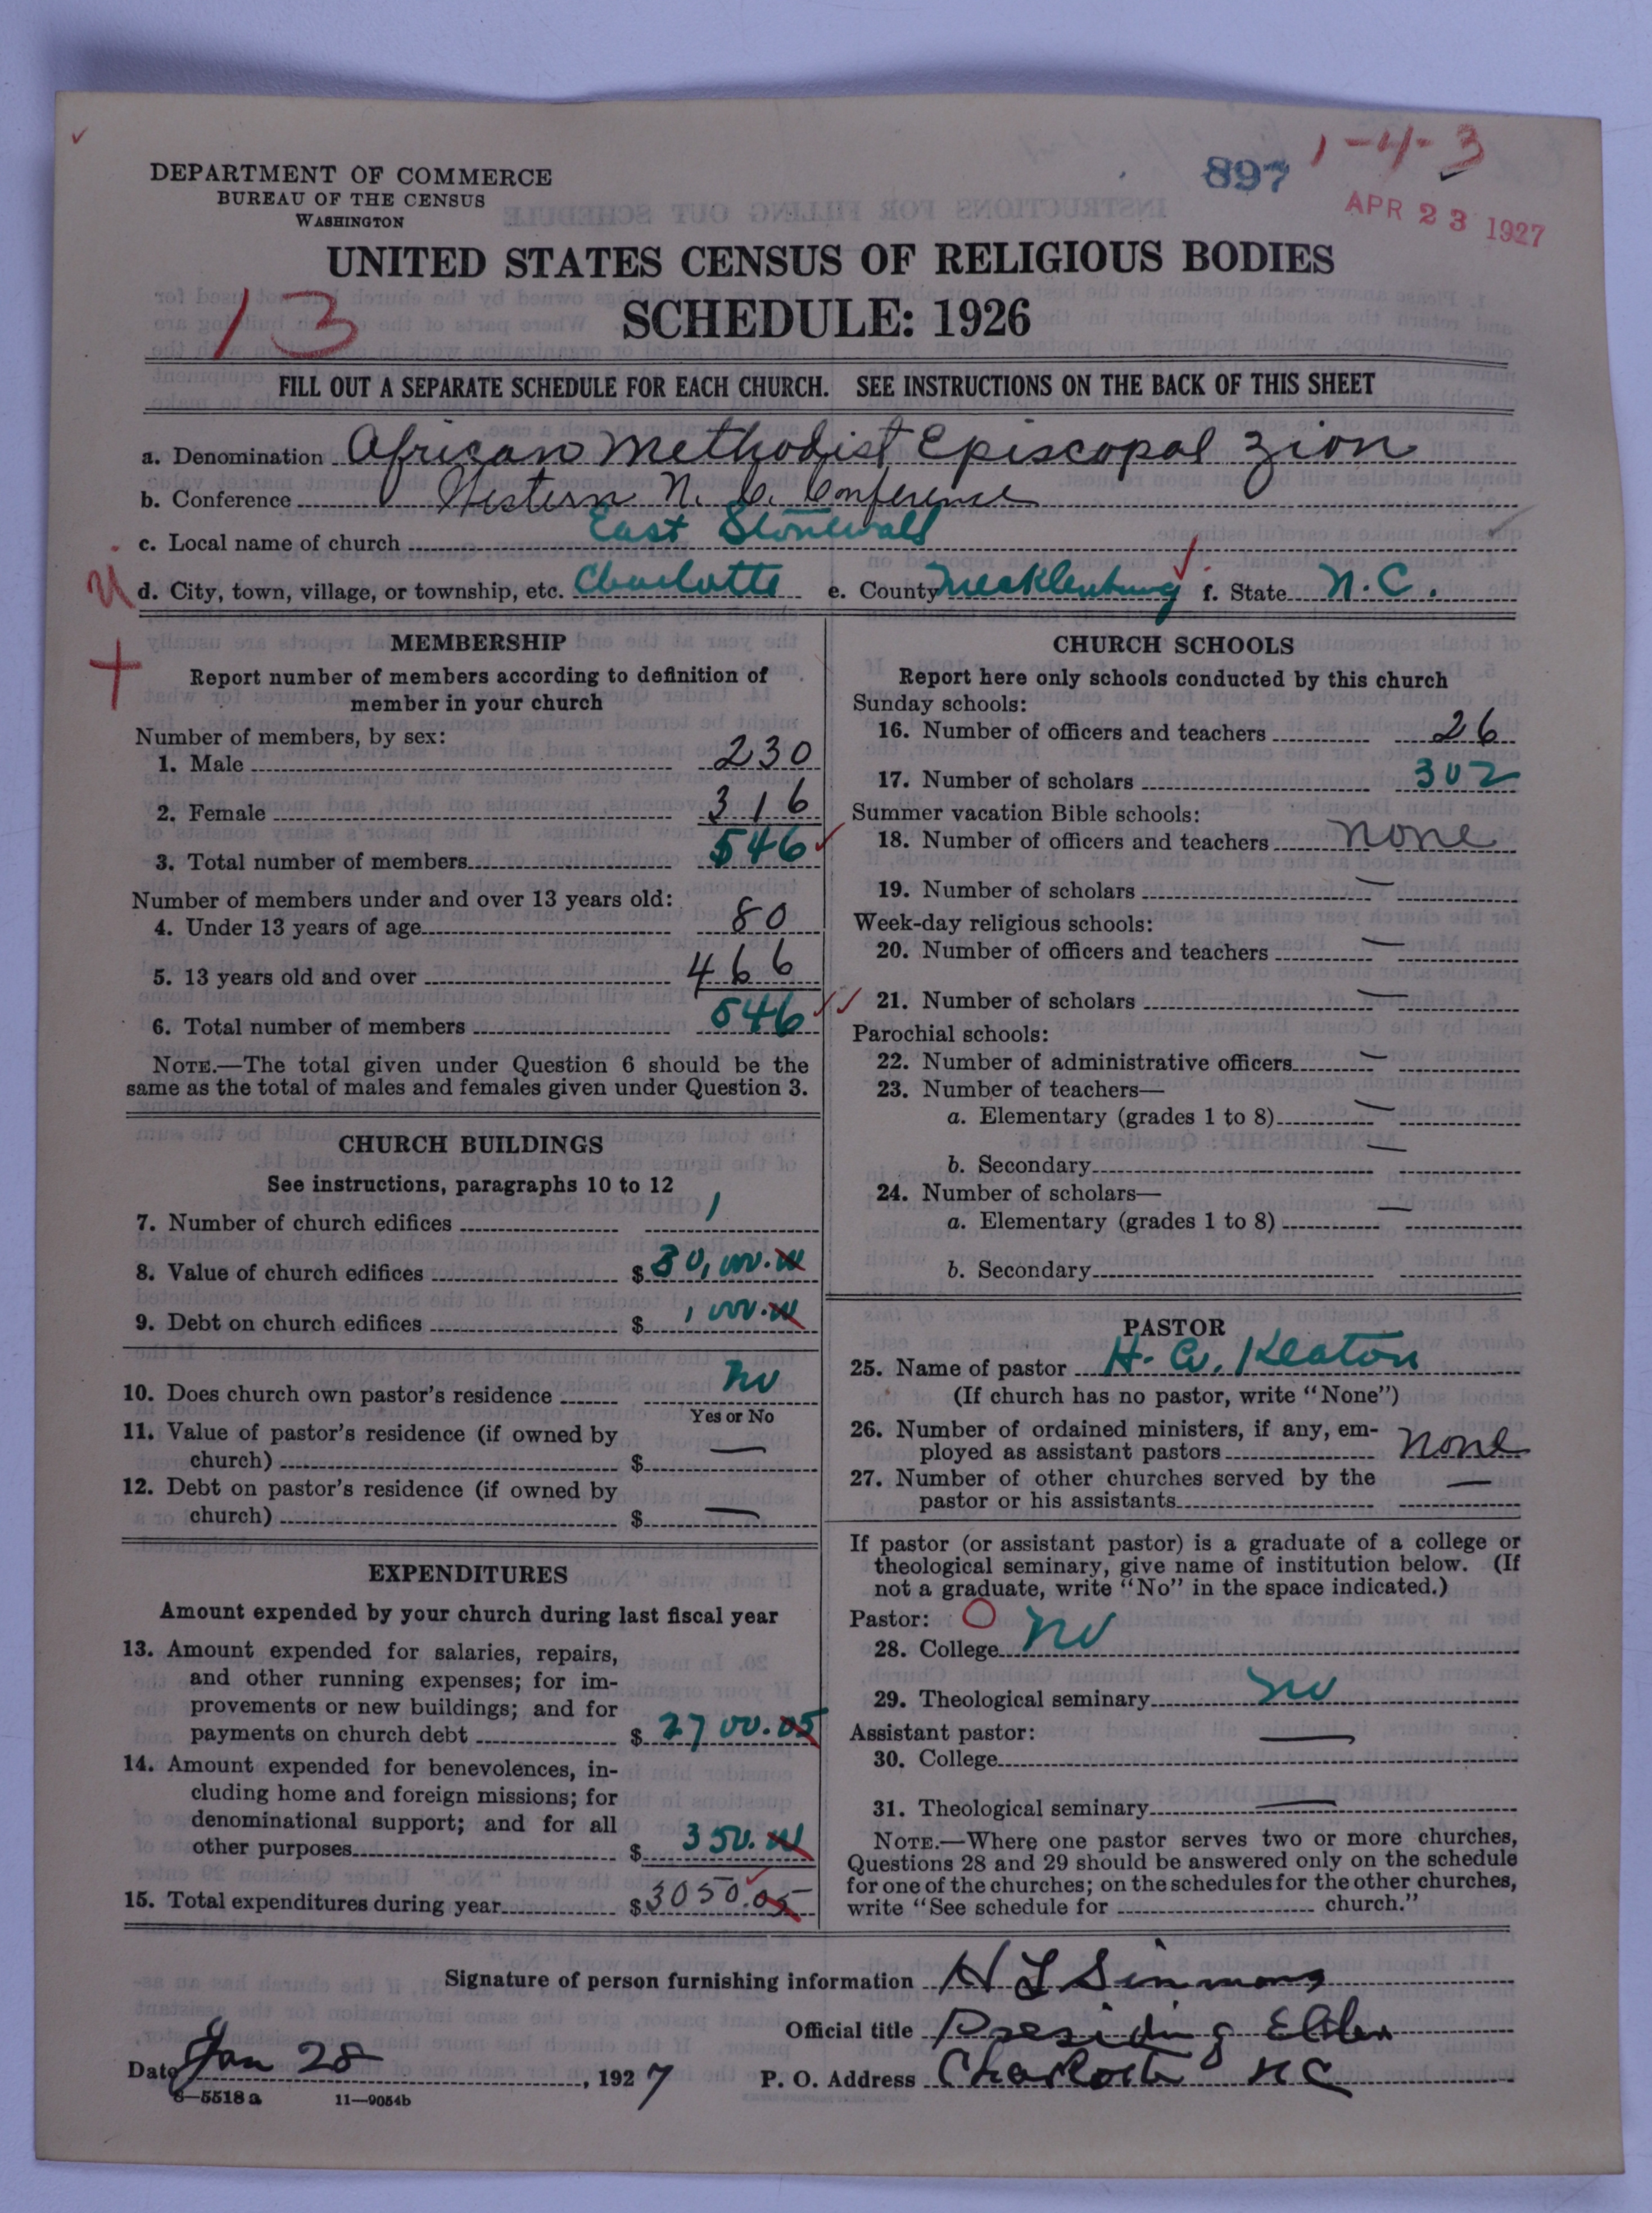 897
1-4-3
APR 23 1927
DEPARTMENT OF COMMERCE
BUREAU OF THE CENSUS
WASHINGTON
UNITED STATES CENSUS OF RELIGIOUS BODIES
13
SCHEDULE: 1926
FILL OUT A SEPARATE SCHEDULE FOR EACH CHURCH. SEE INSTRUCTIONS ON THE BACK OF THIS SHEET
a. Denomination African Methodist Episcopal Zion
b. Conference Western N. C. Conference
c. Local name of church East Stonewall
d. City, town, village, or township, etc. Charlotte e. County Mecklenburg f. State N.C.
MEMBERSHIP
Report number of members according to definition of
member in your church
Number of members, by sex:
1. Male 230
2. Female 316
3. Total number of members 546
Number of members under and over 13 years old:
4. Under 13 years of age 80
5. 13 years old and over 466
6. Total number of members 546
NOTE.—The total given under Question 6 should be the
same as the total of males and females given under Question 3.
CHURCH BUILDINGS
See instructions, paragraphs 10 to 12
7. Number of church edifices 1
8. Value of church edifices $ 30,000.00
9. Debt on church edifices $ 1000.00
10. Does church own pastor's residence No
Yes or No
11. Value of pastor's residence (if owned by
church) $ —
12. Debt on pastor's residence (if owned by
church) $ —
EXPENDITURES
Amount expended by your church during last fiscal year
13. Amount expended for salaries, repairs,
and other running expenses; for im-
provements or new buildings; and for
payments on church debt $ 2700.05
14. Amount expended for benevolences, in-
cluding home and foreign missions; for
denominational support; and for all
other purposes $ 350.00
15. Total expenditures during year $ 3050.05
CHURCH SCHOOLS
Report here only schools conducted by this church
Sunday schools:
16. Number of officers and teachers 26
17. Number of scholars 302
Summer vacation Bible schools:
18. Number of officers and teachers none
19. Number of scholars —
Week-day religious schools:
20. Number of officers and teachers —
21. Number of scholars —
Parochial schools:
22. Number of administrative officers —
23. Number of teachers—
a. Elementary (grades 1 to 8) —
b. Secondary —
24. Number of scholars—
a. Elementary (grades 1 to 8) —
b. Secondary
PASTOR
25. Name of pastor H. W. Keaton
(If church has no pastor, write "None")
26. Number of ordained ministers, if any, em-
ployed as assistant pastors none
27. Number of other churches served by the
pastor or his assistants —
If pastor (or assistant pastor) is a graduate of a college or
theological seminary, give name of institution below. (If
not a graduate, write "No" in the space indicated.)
Pastor: O
28. College No
29. Theological seminary No
Assistant pastor:
30. College —
31. Theological seminary —
NOTE.—Where one pastor serves two or more churches,
Questions 28 and 29 should be answered only on the schedule
for one of the churches; on the schedules for the other churches,
write "See schedule for church."
Signature of person furnishing information H L Simmons
Official title Presiding Elder
Date Jan 28, 1927 P. O. Address Charlotte N C
8—5518a 11—9054b